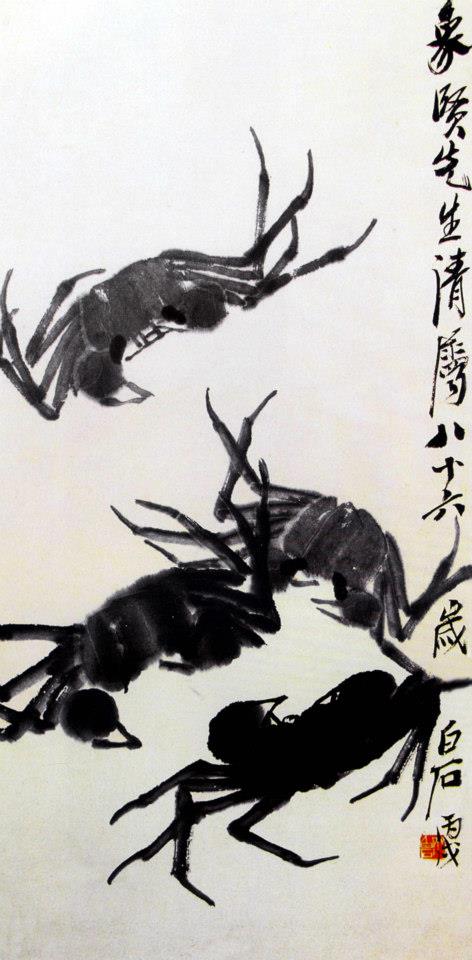 象賢先生清屬八十六歲白石丙戌